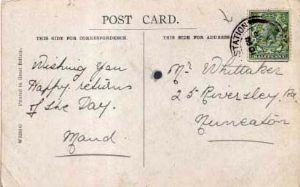 POST CARD.
THIS SIDE FOR CORRESPONDENCE.
THIS SIDE FOR ADDRESS
Wishing you
Happy returns
of the Day.
Maud
Mr Whittaker
25 Riversley Rd
Nuneaton
STATION
HALFPENNY
Printed in Great Britain.